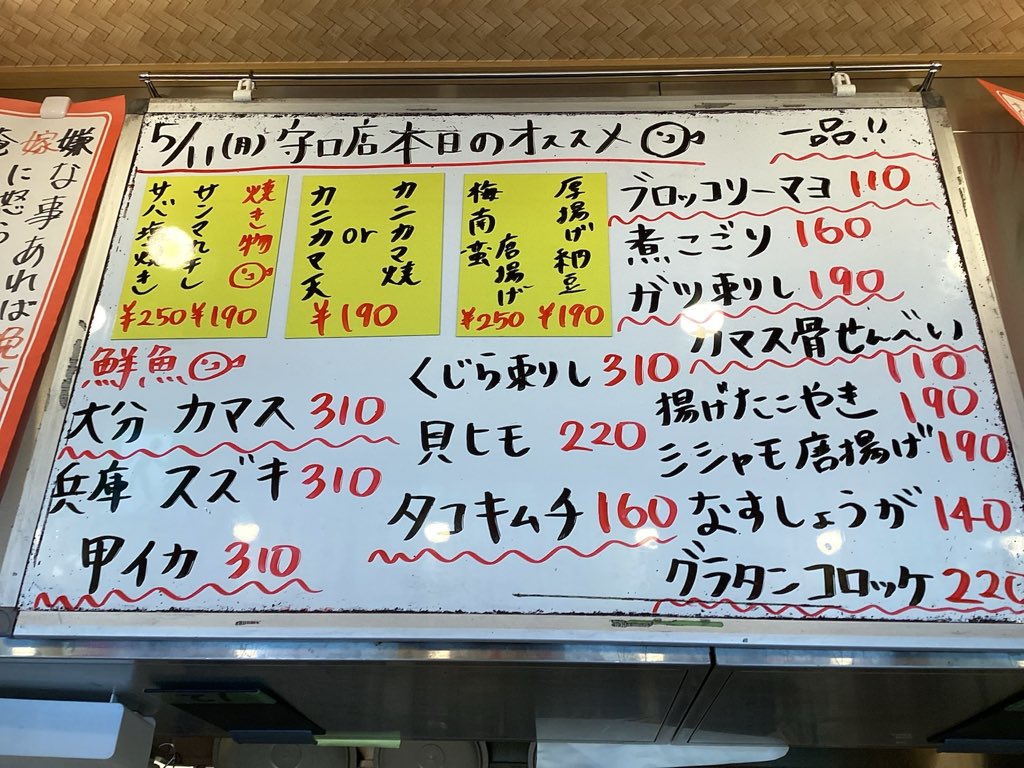 5/11(月) 守口店本日のオススメ
一品!!
焼き物
サンマ丸干し
¥190
サバ塩焼き
¥250
カニカマ焼
or
カニカマ天
¥190
厚揚げ納豆
¥190
梅南蛮
唐揚げ
¥250
鮮魚
大分 カマス 310
兵庫 スズキ 310
甲イカ 310
くじら刺し 310
貝ヒモ 220
タコキムチ 160
ブロッコリーマヨ 110
煮こごり 160
ガツ刺し 190
カマス骨せんべい
110
揚げたこやき 190
シシャモ唐揚げ 190
なすしょうが 140
グラタンコロッケ 220
嫌な事あれば
嫁に怒ら